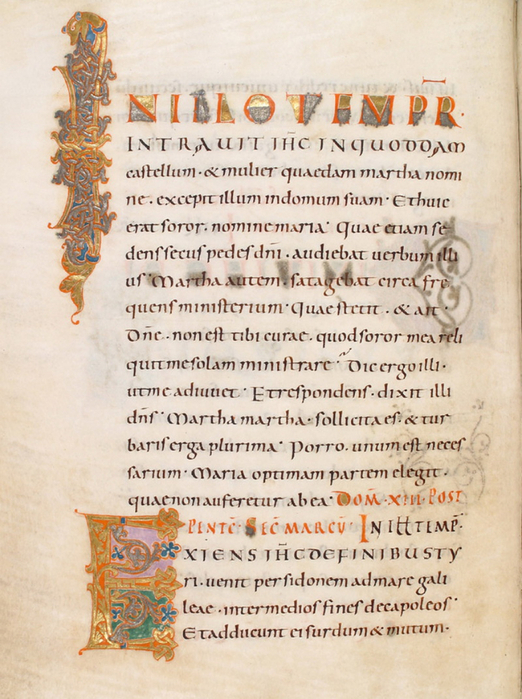 IN ILLO TEMPR.
INTRAVIT IHC INQUODDAM
castellum · & mulier quaedam martha nomi
ne · excepit illum indomum suam · Et huic
erat soror · nomine maria · Quae etiam se
dens secus pedes dni · audiebat verbum illi
us · Martha autem · satagebat circa fre
quens ministerium · Quae stetit · & ait ·
Dne · non est tibi curae · quod soror mea reli
quit me solam ministrare · Dic ergo illi ·
ut me adiuvet · Et respondens · dixit illi
dns · Martha martha · sollicita es · & tur
baris erga plurima · Porro · unum est neces
sarium · Maria optimam partem elegit ·
quae non auferetur ab ea · DOM · XIII · POST
PENTC · SEC MARCU IN ILL TEMP ·
EXIENS IHC DEFINIBUS TY
ri · venit per sidonem ad mare gali
leae · inter medios fines decapoleos
Et adducunt ei surdum & mutum ·